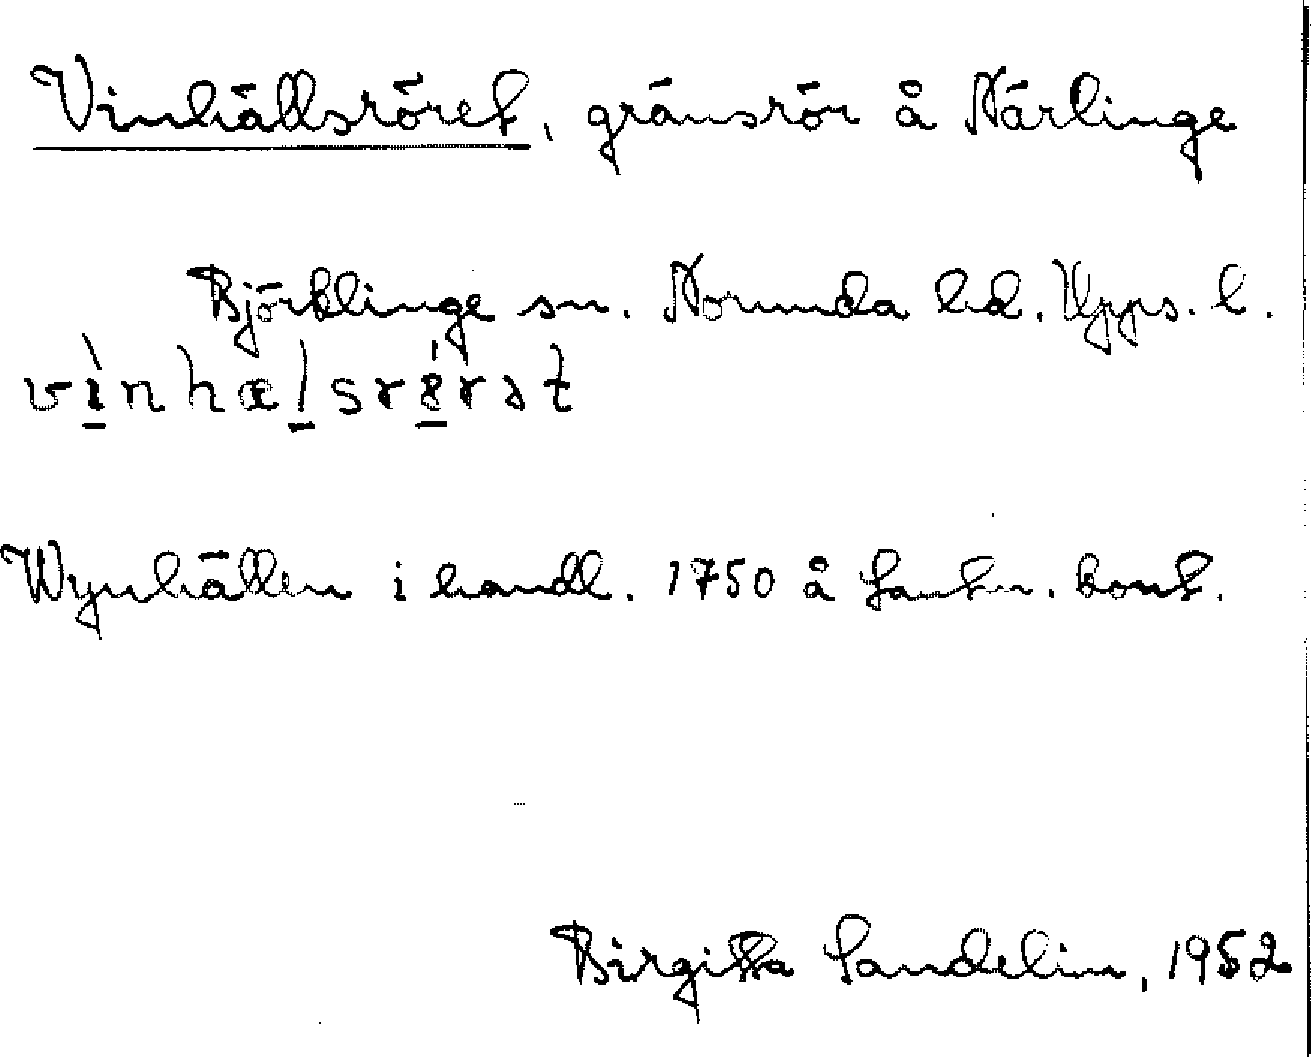 Vinhällsröret, gränsrör å Närlinge
Björklinge sn. Norunda hd. Upps. l.
vìnhælsrö́rət
Wynhällen i handl. 1750 å Lantm. kont.
Birgitta Sandelin, 1952